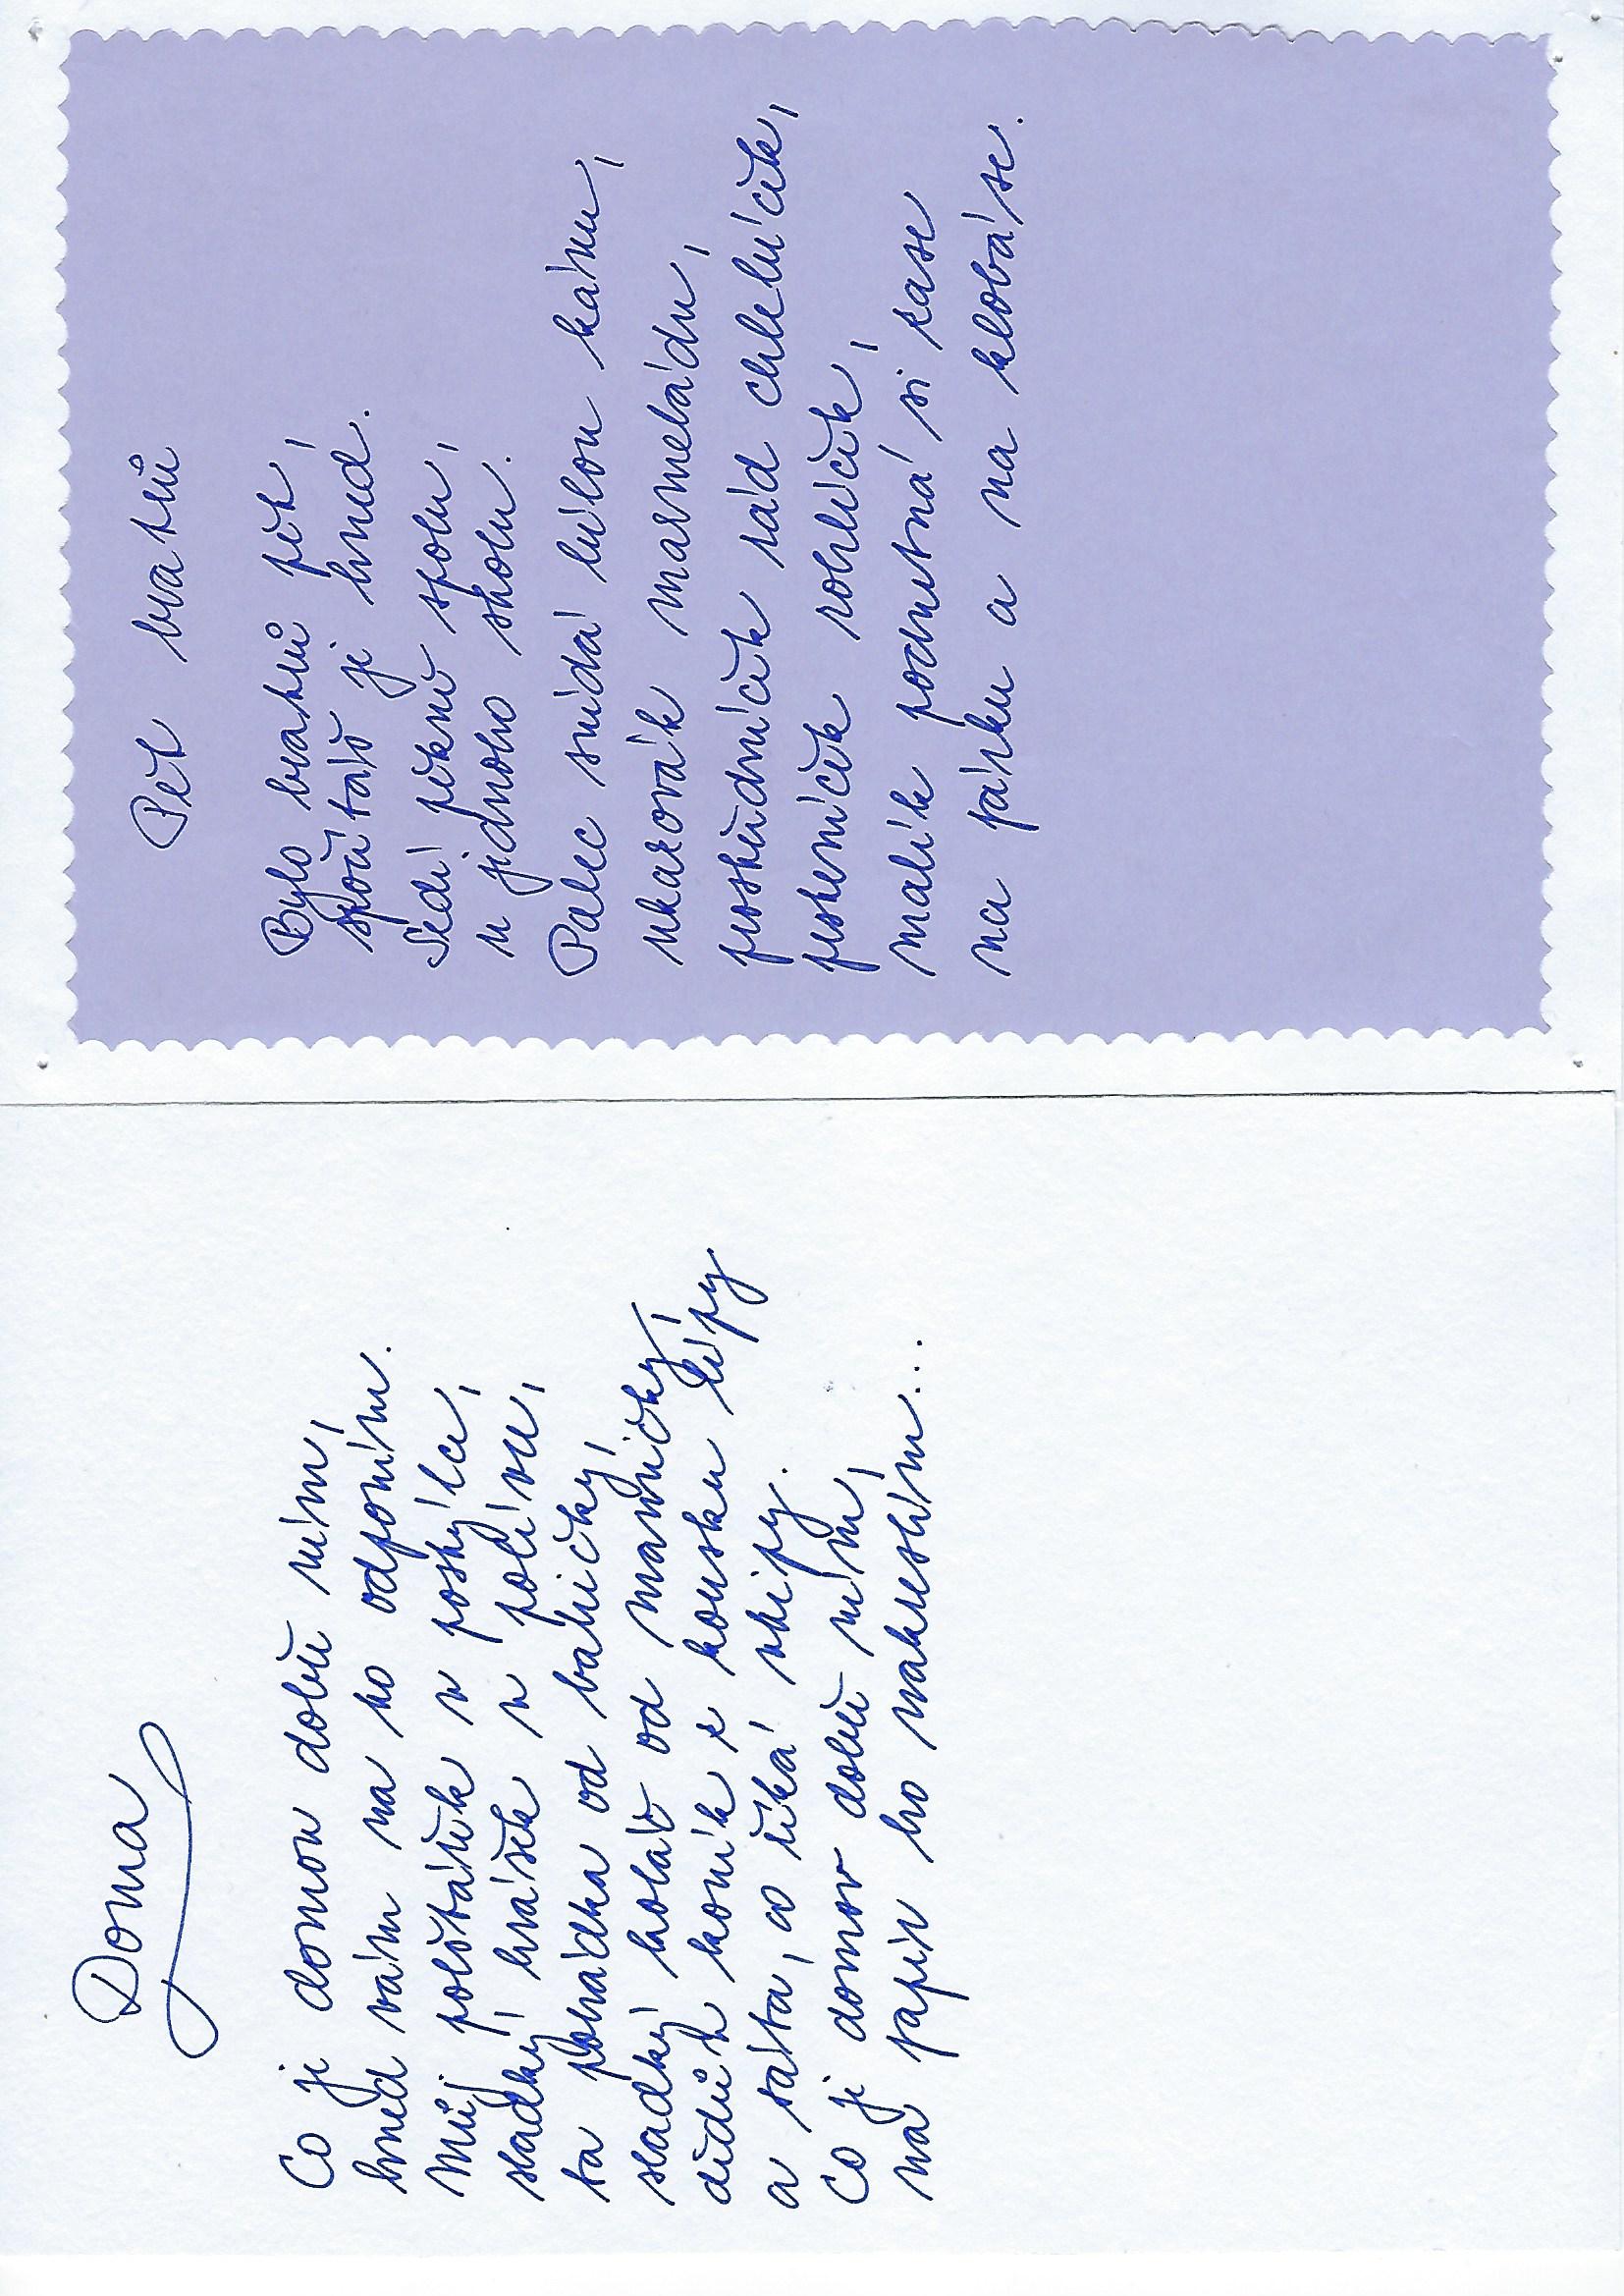 Doma
Co je domov dobře vím,
hned vám na to odpovím.
Můj polštářek v postýlce,
sladký hrášek v polévce,
ta pohádka od babičky,
sladký koláč od mamičky,
dědův koník z kousku lípy
a táta, co říká vtipy.
Co je domov dobře vím,
na papír ho nakreslím...
Pět bratrů
Bylo bratrů pět,
spočítáš je hned.
Sedí pěkně spolu,
u jednoho stolu.
Palec snídá bílou kávu,
ukazovák marmeládu,
prostředníček rád chlebíček,
prsteníček rohlíček,
malík pochutná si zase
na párku a na klobáse.